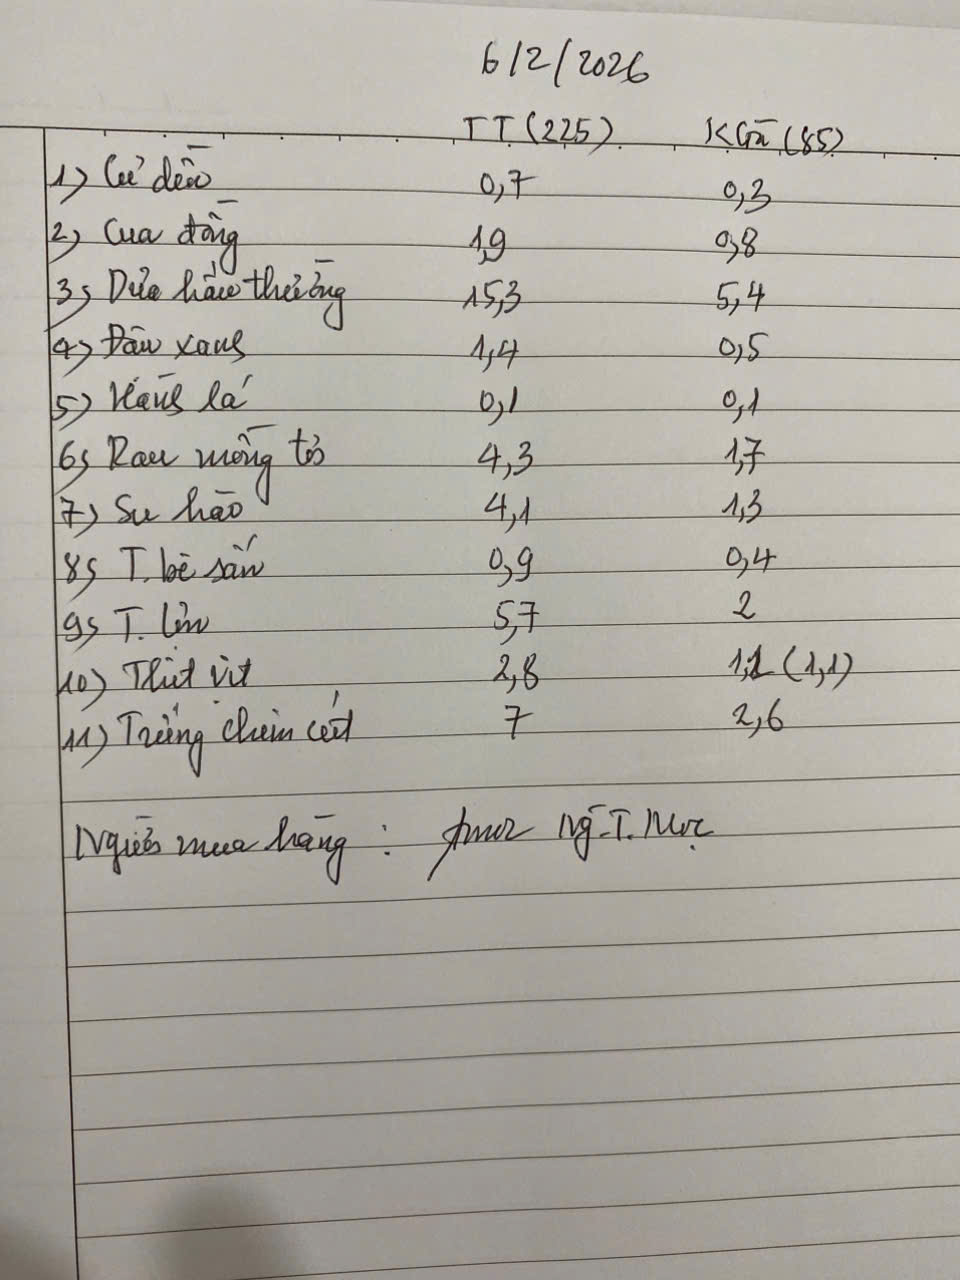 6/2/2026
TT (225) KGà (85)
1) Củ dền 0,7 0,3
2) Cua đồng 1,9 0,8
3) Dưa hấu thường 15,3 5,4
4) Đậu xanh 1,4 0,5
5) Hành lá 0,1 0,1
6) Rau mồng tơi 4,3 1,7
7) Su hào 4,1 1,3
8) T. bê sấn 0,9 0,4
9) T. lợn 5,7 2
10) Thịt vịt 2,8 1,1 (1,1)
11) Trứng chim cút 7 2,6
Người mua hàng : Ng~ T.